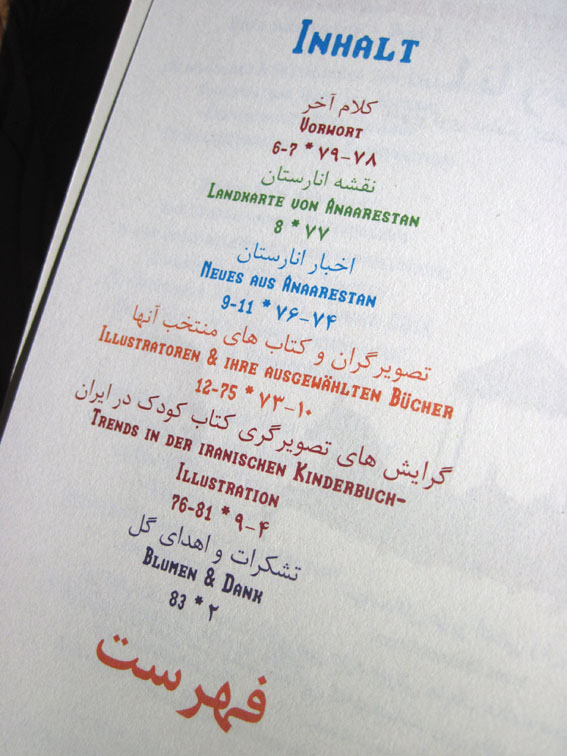 INHALT
کلام آخر
VORWORT
6-7 * ۷۹-۷۸
نقشه انارستان
LANDKARTE VON ANAARESTAN
8 * ۷۷
اخبار انارستان
NEUES AUS ANAARESTAN
9-11 * ۷۶-۷۴
تصویرگران و کتاب های منتخب آنها
ILLUSTRATOREN & IHRE AUSGEWÄHLTEN BÜCHER
12-75 * ۷۳-۱۰
گرایش های تصویرگری کتاب کودک در ایران
TRENDS IN DER IRANISCHEN KINDERBUCH-
ILLUSTRATION
76-81 * ۹-۴
تشکرات و اهدای گل
BLUMEN & DANK
83 * ۲
فهرست